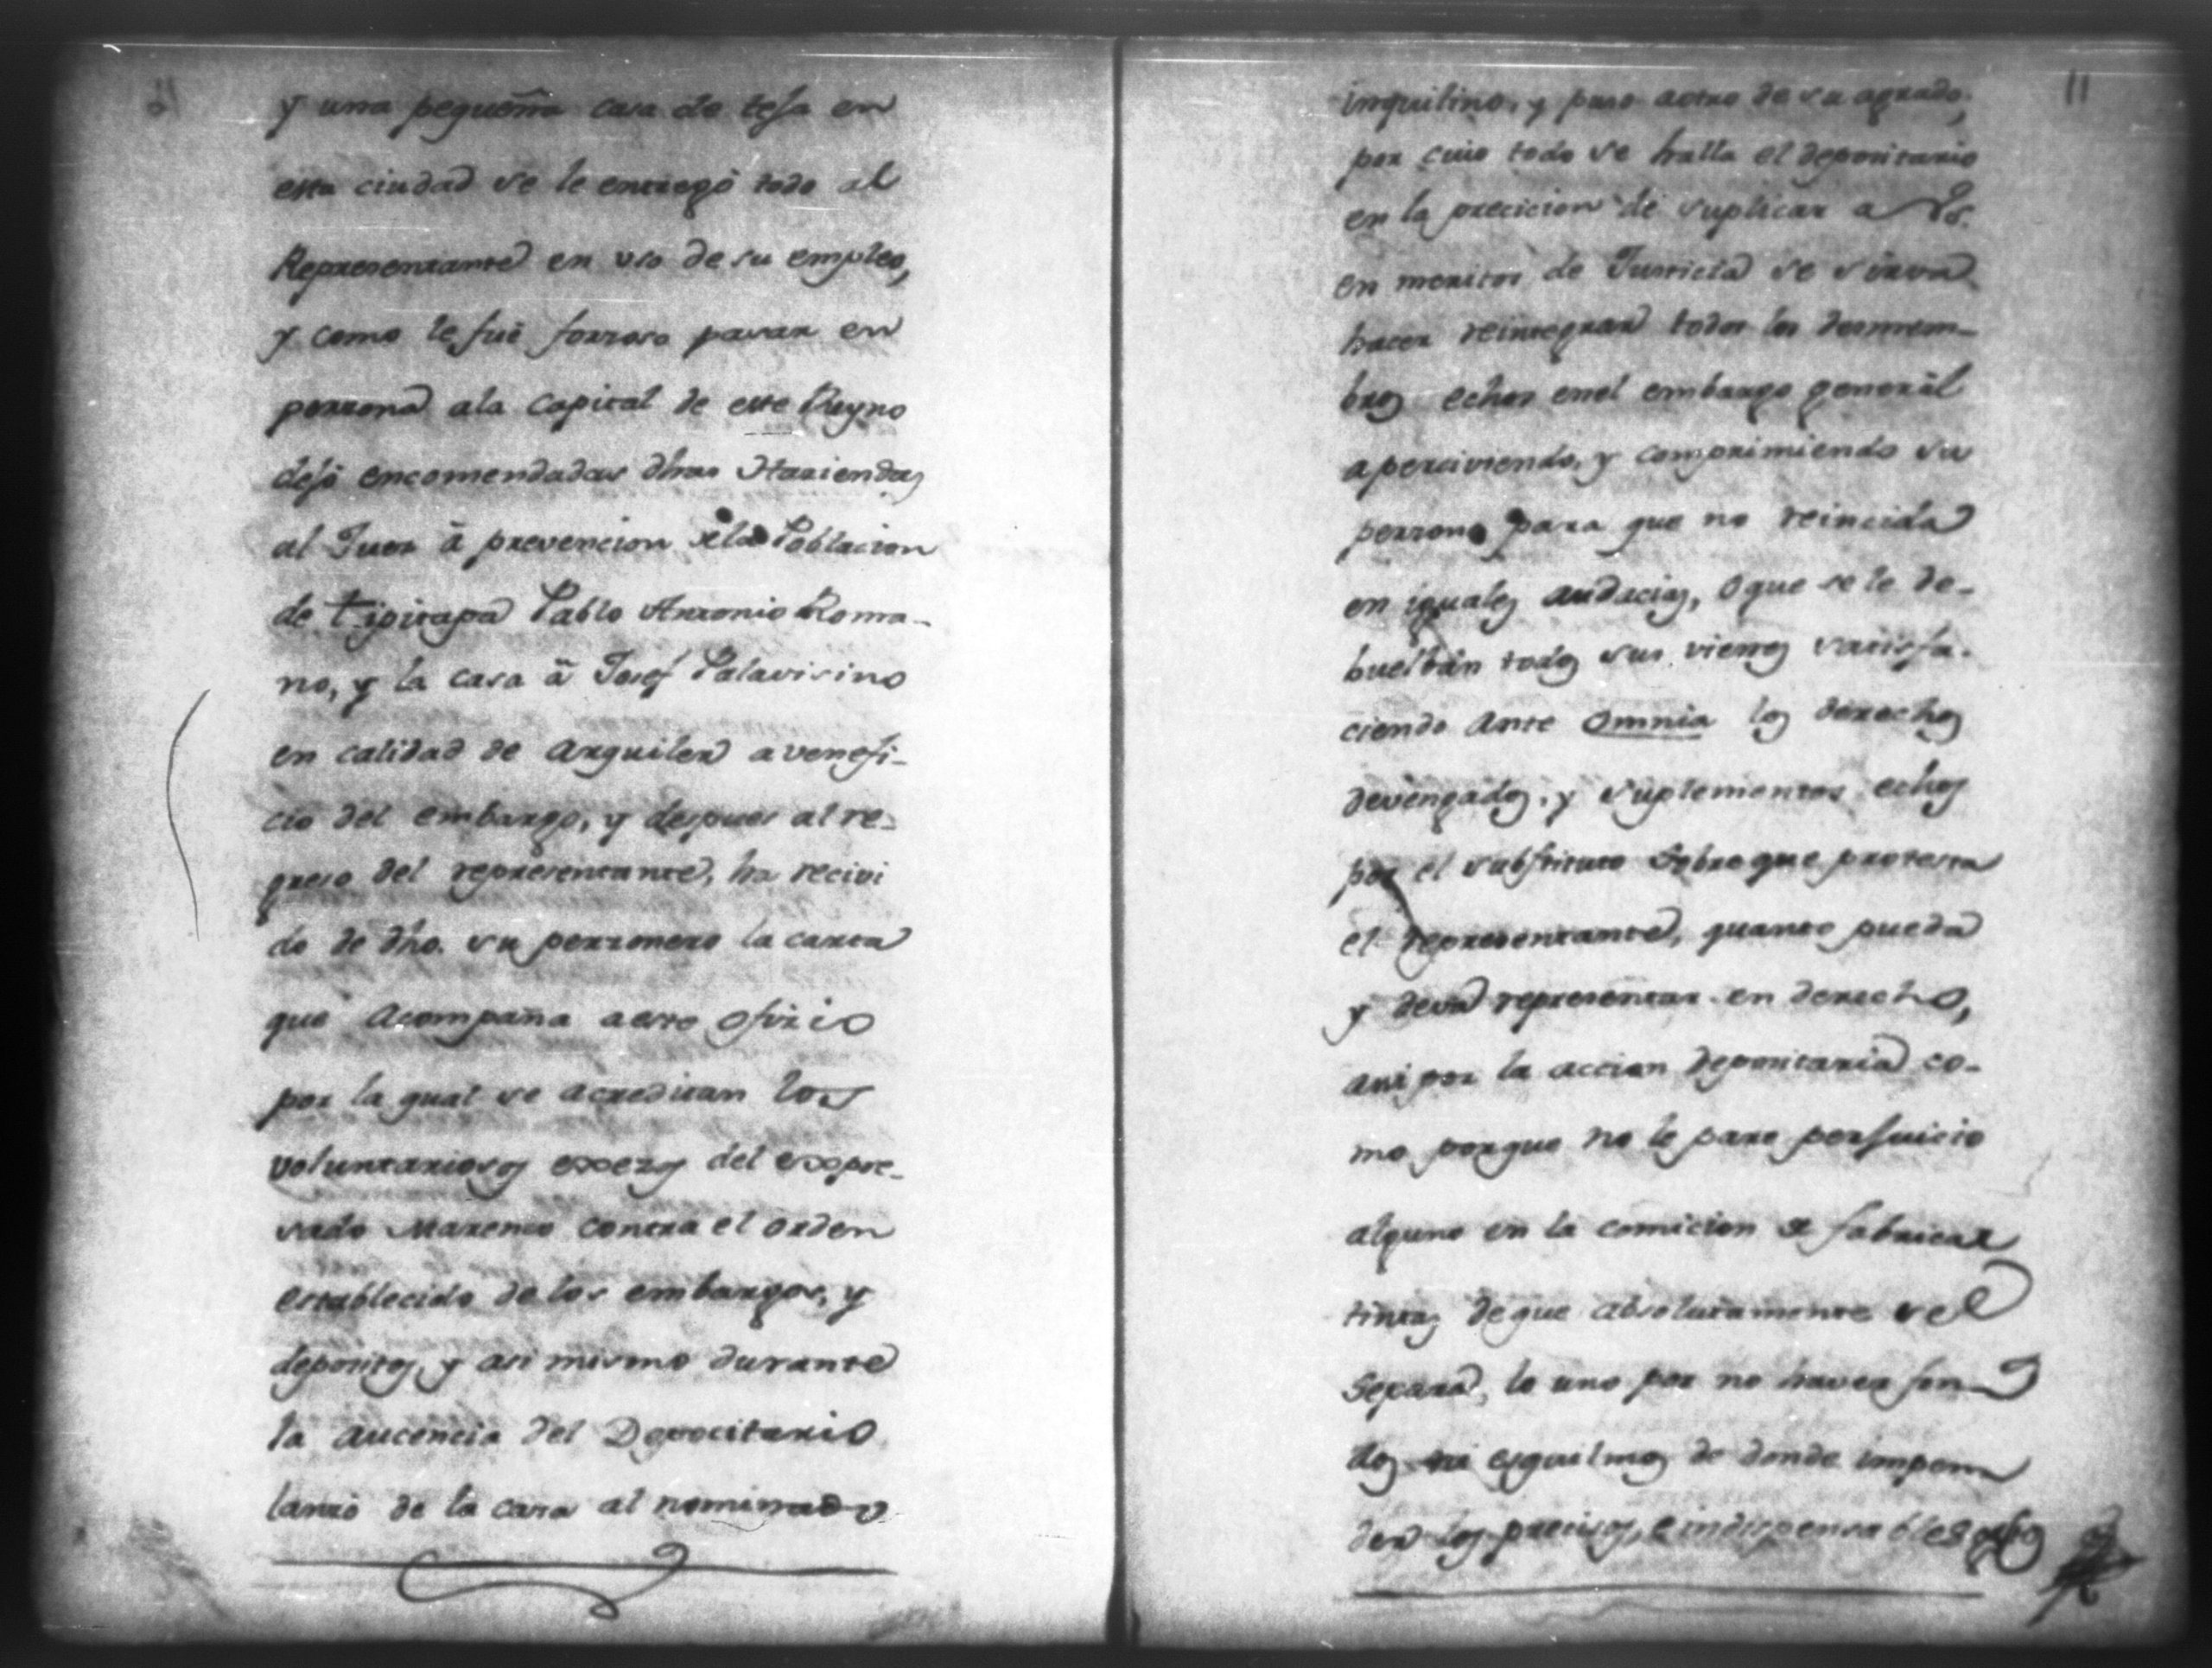 y una pequeña casa de teja en
esta ciudad se le entregó todo al
Representante en uso de su empleo,
y como le fué forzoso pasar en
perzona ala Capital de este Reyno
dejó encomendadas dhas Haziendas
al Juez à prevencion de la Poblacion
de Tipitapa Pablo Antonio Roma-
no, y la casa à Josef Palavisino
en calidad de arquiler a venefi-
cio del embargo, y despues al re-
greso del representante, ha recivi
do de dho. su perzonero la carta
que acompaña a este ofizio
por la qual se acreditan los
voluntariosos exezos del expre-
sado Marenco contra el orden
establecido de los embargos, y
depositos, y asi mismo durante
la aucencia del Depocitario
lanzó de la casa al nominado
11
inquilino, y puso aotro de su agrado,
por cuio todo se halla el depositario
en la precicion de suplicar a Vs.
en meritos de Justicia se sirva
hacer reintegrar todos los desmem-
bros echos enel embargo general
aperciviendo, y comprimiendo su
perzona para que no reincida
en iguales audacias, O que se le de-
buelban todos sus vienes satisfa-
ciendo ante Omnia los derechos
devengados, y suplementos echos
por el substituto Sobre que protesta
el representante, quanto pueda
y deva representar en derecho,
asi por la accion depositaria co-
mo porque no le pare perjuicio
alguno en la comicion de fabricar
tintas de que absolutamente se
Separa, lo uno por no haver fon-
dos ni esquilmos de donde impen
der los precisos, e indispensables gastos